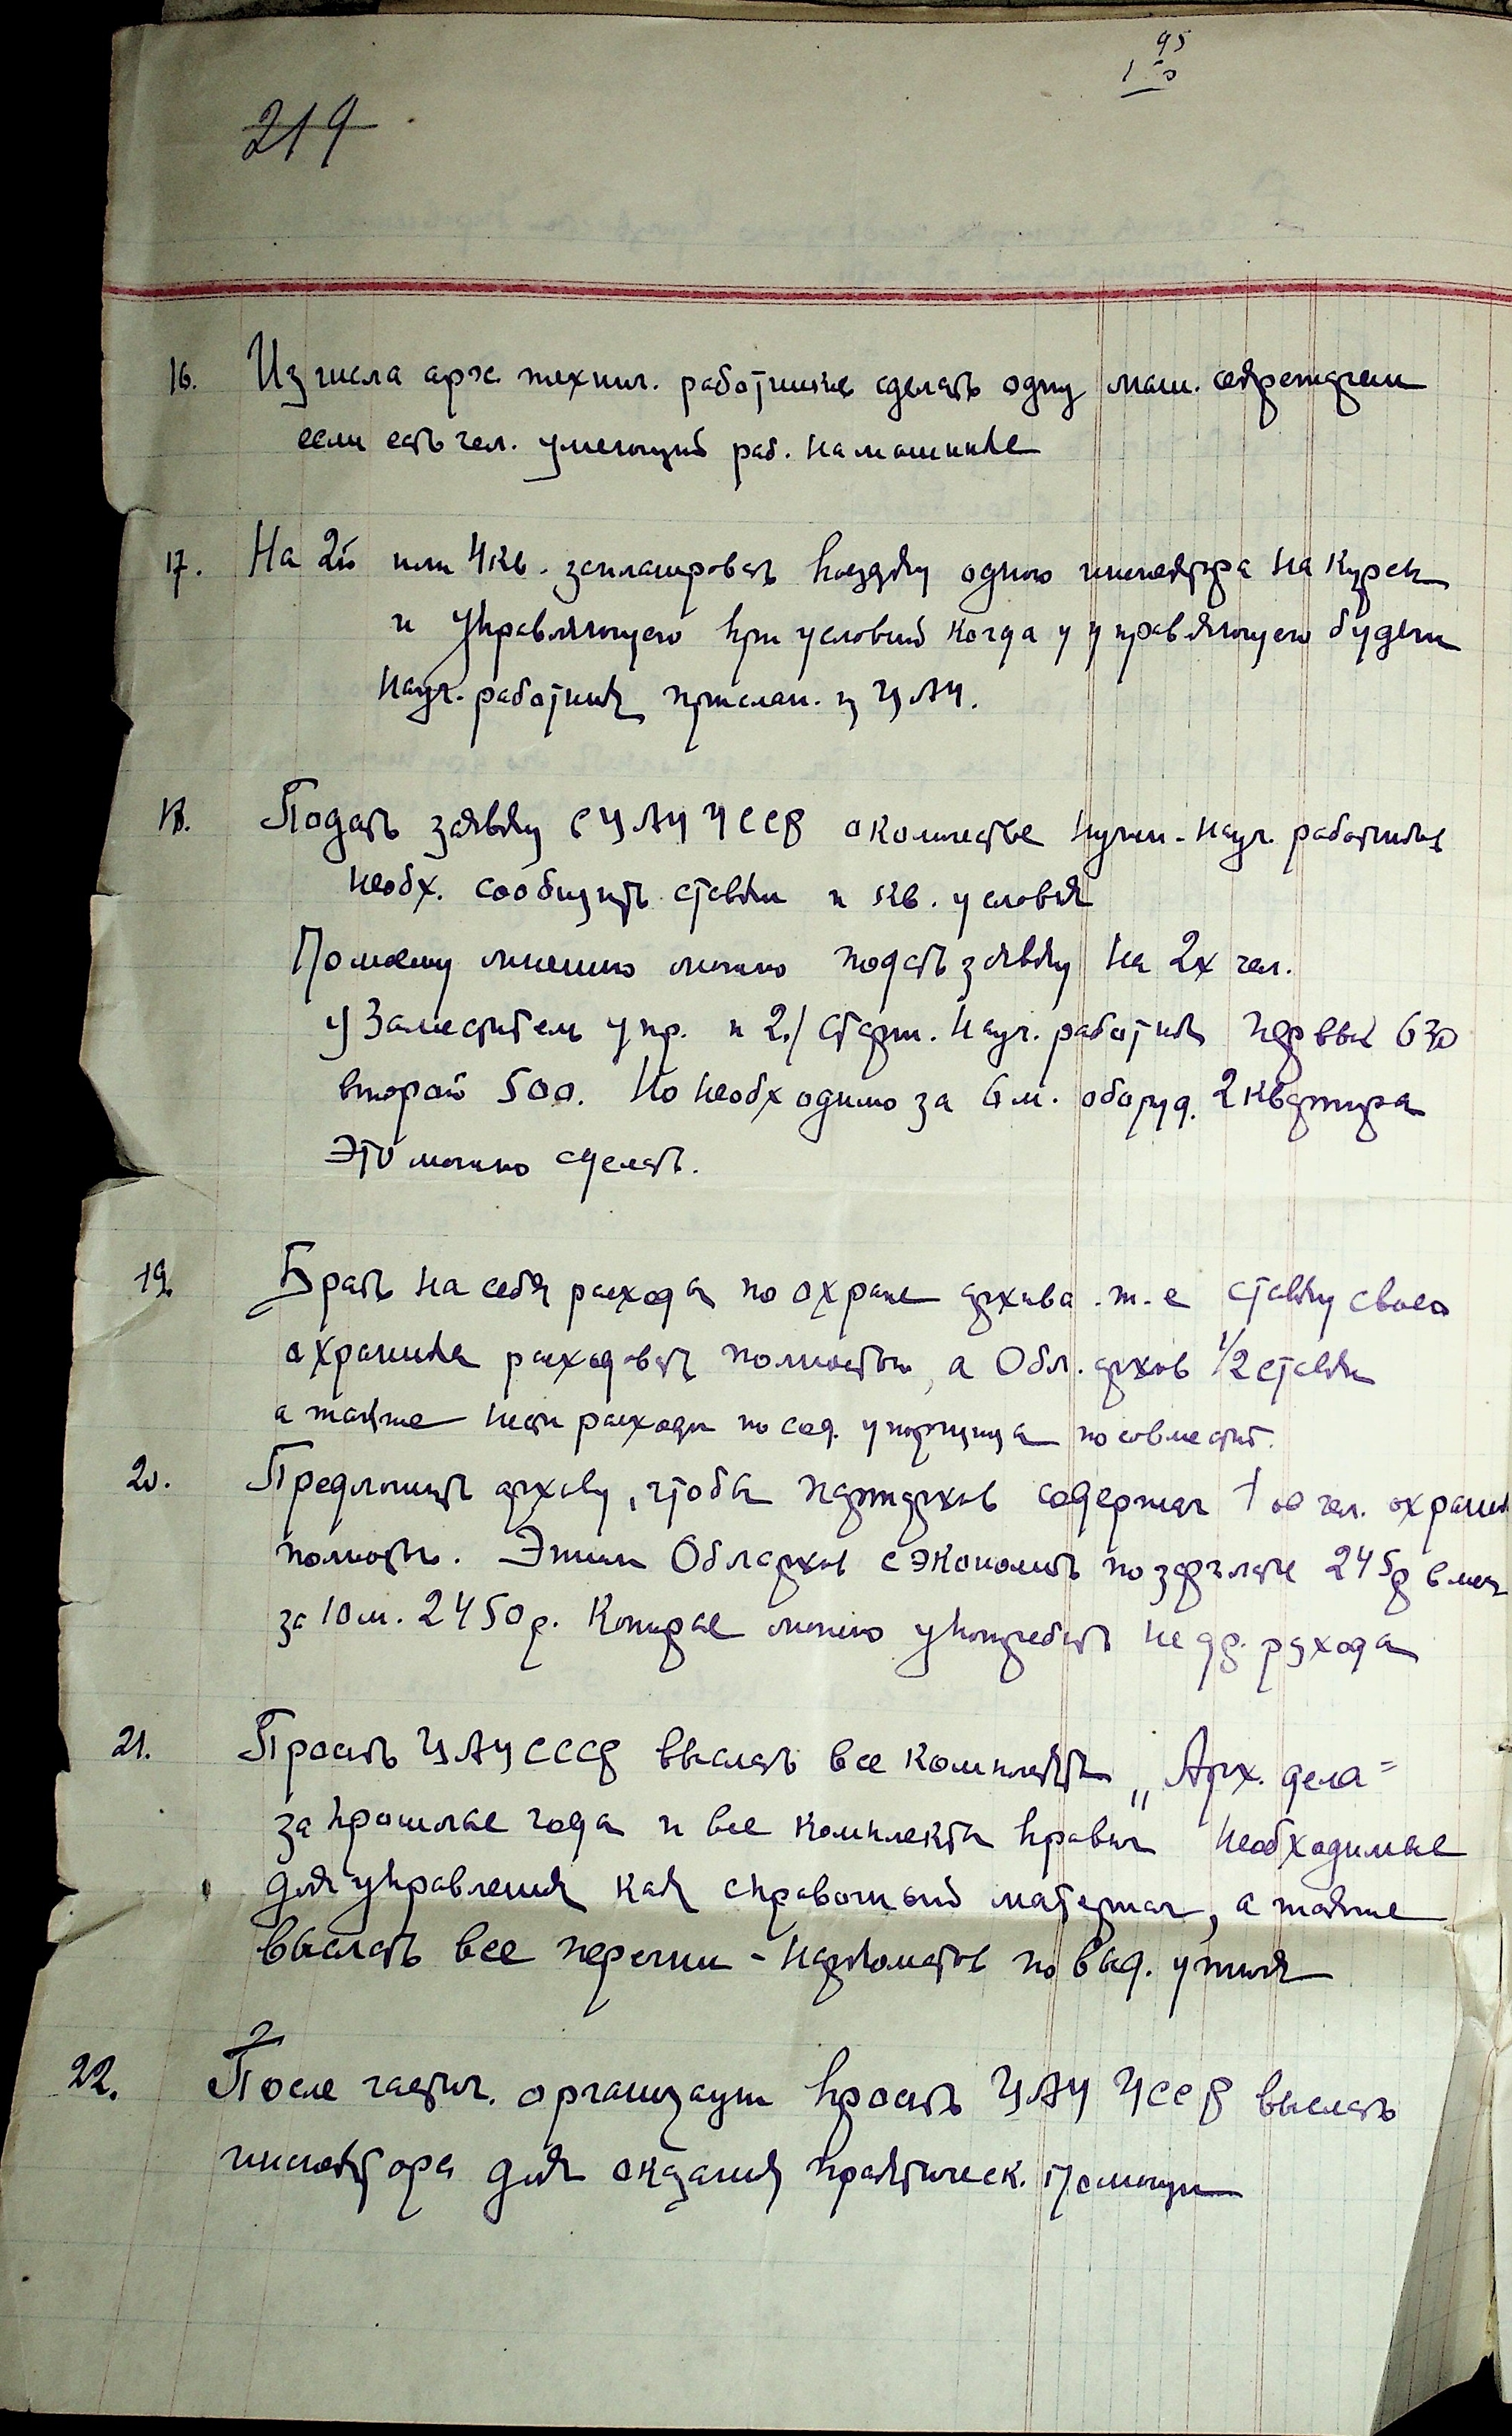 95
219
16. Из числа арх. технич. работников сделать одну маш. секретарем
если есть чел. умеющий раб. на машинке
17. На 2й или 4кв. запланировать поездку одного инспектора на курсы
и управляющего при условий когда у управляющего будет
науч. работник прислан. из ЦАУ.
18. Подать заявку в ЦАУ УССР о количестве нужн. науч. работников
необх. сообщить ставки и кв. условия
По моему мнению можно подать заявку на 2х чел.
1) Заместитель упр. и 2./ старш. науч. работник первый 630
второй 500. Но необходимо за 6 м. оборуд. 2 квартиры
Это можно сделать.
19. Брать на себя расходы по охране архива т.е ставку своего
охраника расходовать полностью, а Обл. архив 1/2 ставки
а также нести расходы по сод. уборщицы по совместит.
20. Предложить архиву, чтобы партархив содержал 1 чел. охраны
полность. Этим Облархив сэкономить по зарплате 245р в мес
за 10 м. 2450р. Которые можно употребить на др. расхода
21. Просить ЦАУ СССР выслать все комплекты „Арх. дела"
за прошлые года и все комплекты правил необходимые
для управления как справочный материал, а также
выслать все перечни - наркоматов по выд. утиля
22. После частич. организации просить ЦАУ УССР выслать
инспектора для оказания практическ. помощи